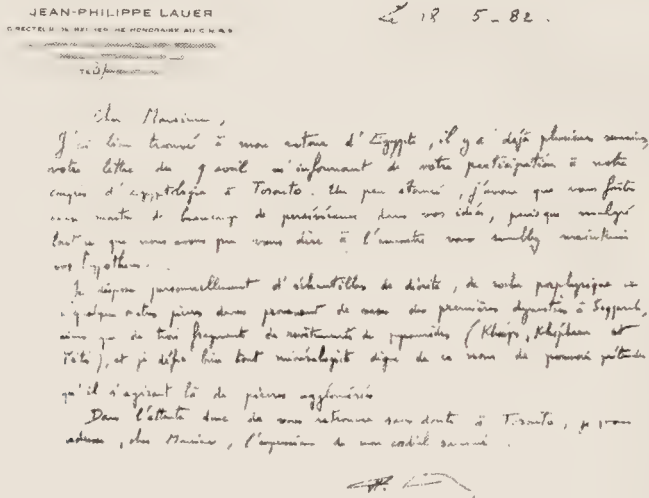 JEAN-PHILIPPE LAUER
DIRECTEUR DE RECHERCHE HONORAIRE AU C.N.R.S
Le 18 5-82.
Cher Monsieur,
J'ai bien trouvé à mon retour d'Egypte, il y a déjà plusieurs semaines,
votre lettre du 9 avril m'informant de votre participation à notre
congrès d'égyptologie à Toronto. Un peu étonné, j'avoue que vous faites
montre de beaucoup de persévérance dans vos idées, puisque malgré
tout ce que nous avons pu vous dire à l'encontre vous semblez maintenir
vos hypothèses.
Je dispose personnellement d'échantillons de diorite, de roche porphyrique
quelques autres pierres dures provenant de vases des premières dynasties à Saqqarah,
ainsi que de trois fragments de revêtements de pyramides (Khéops, Khéphren et
Téti), et je défie bien tout minéralogiste digne de ce nom de pouvoir prétendre
qu'il s'agirait là de pierres agglomérées
Dans l'attente donc de vous retrouver sans doute à Toronto, je vous
adresse, cher Monsieur, l'expression de mon cordial souvenir.